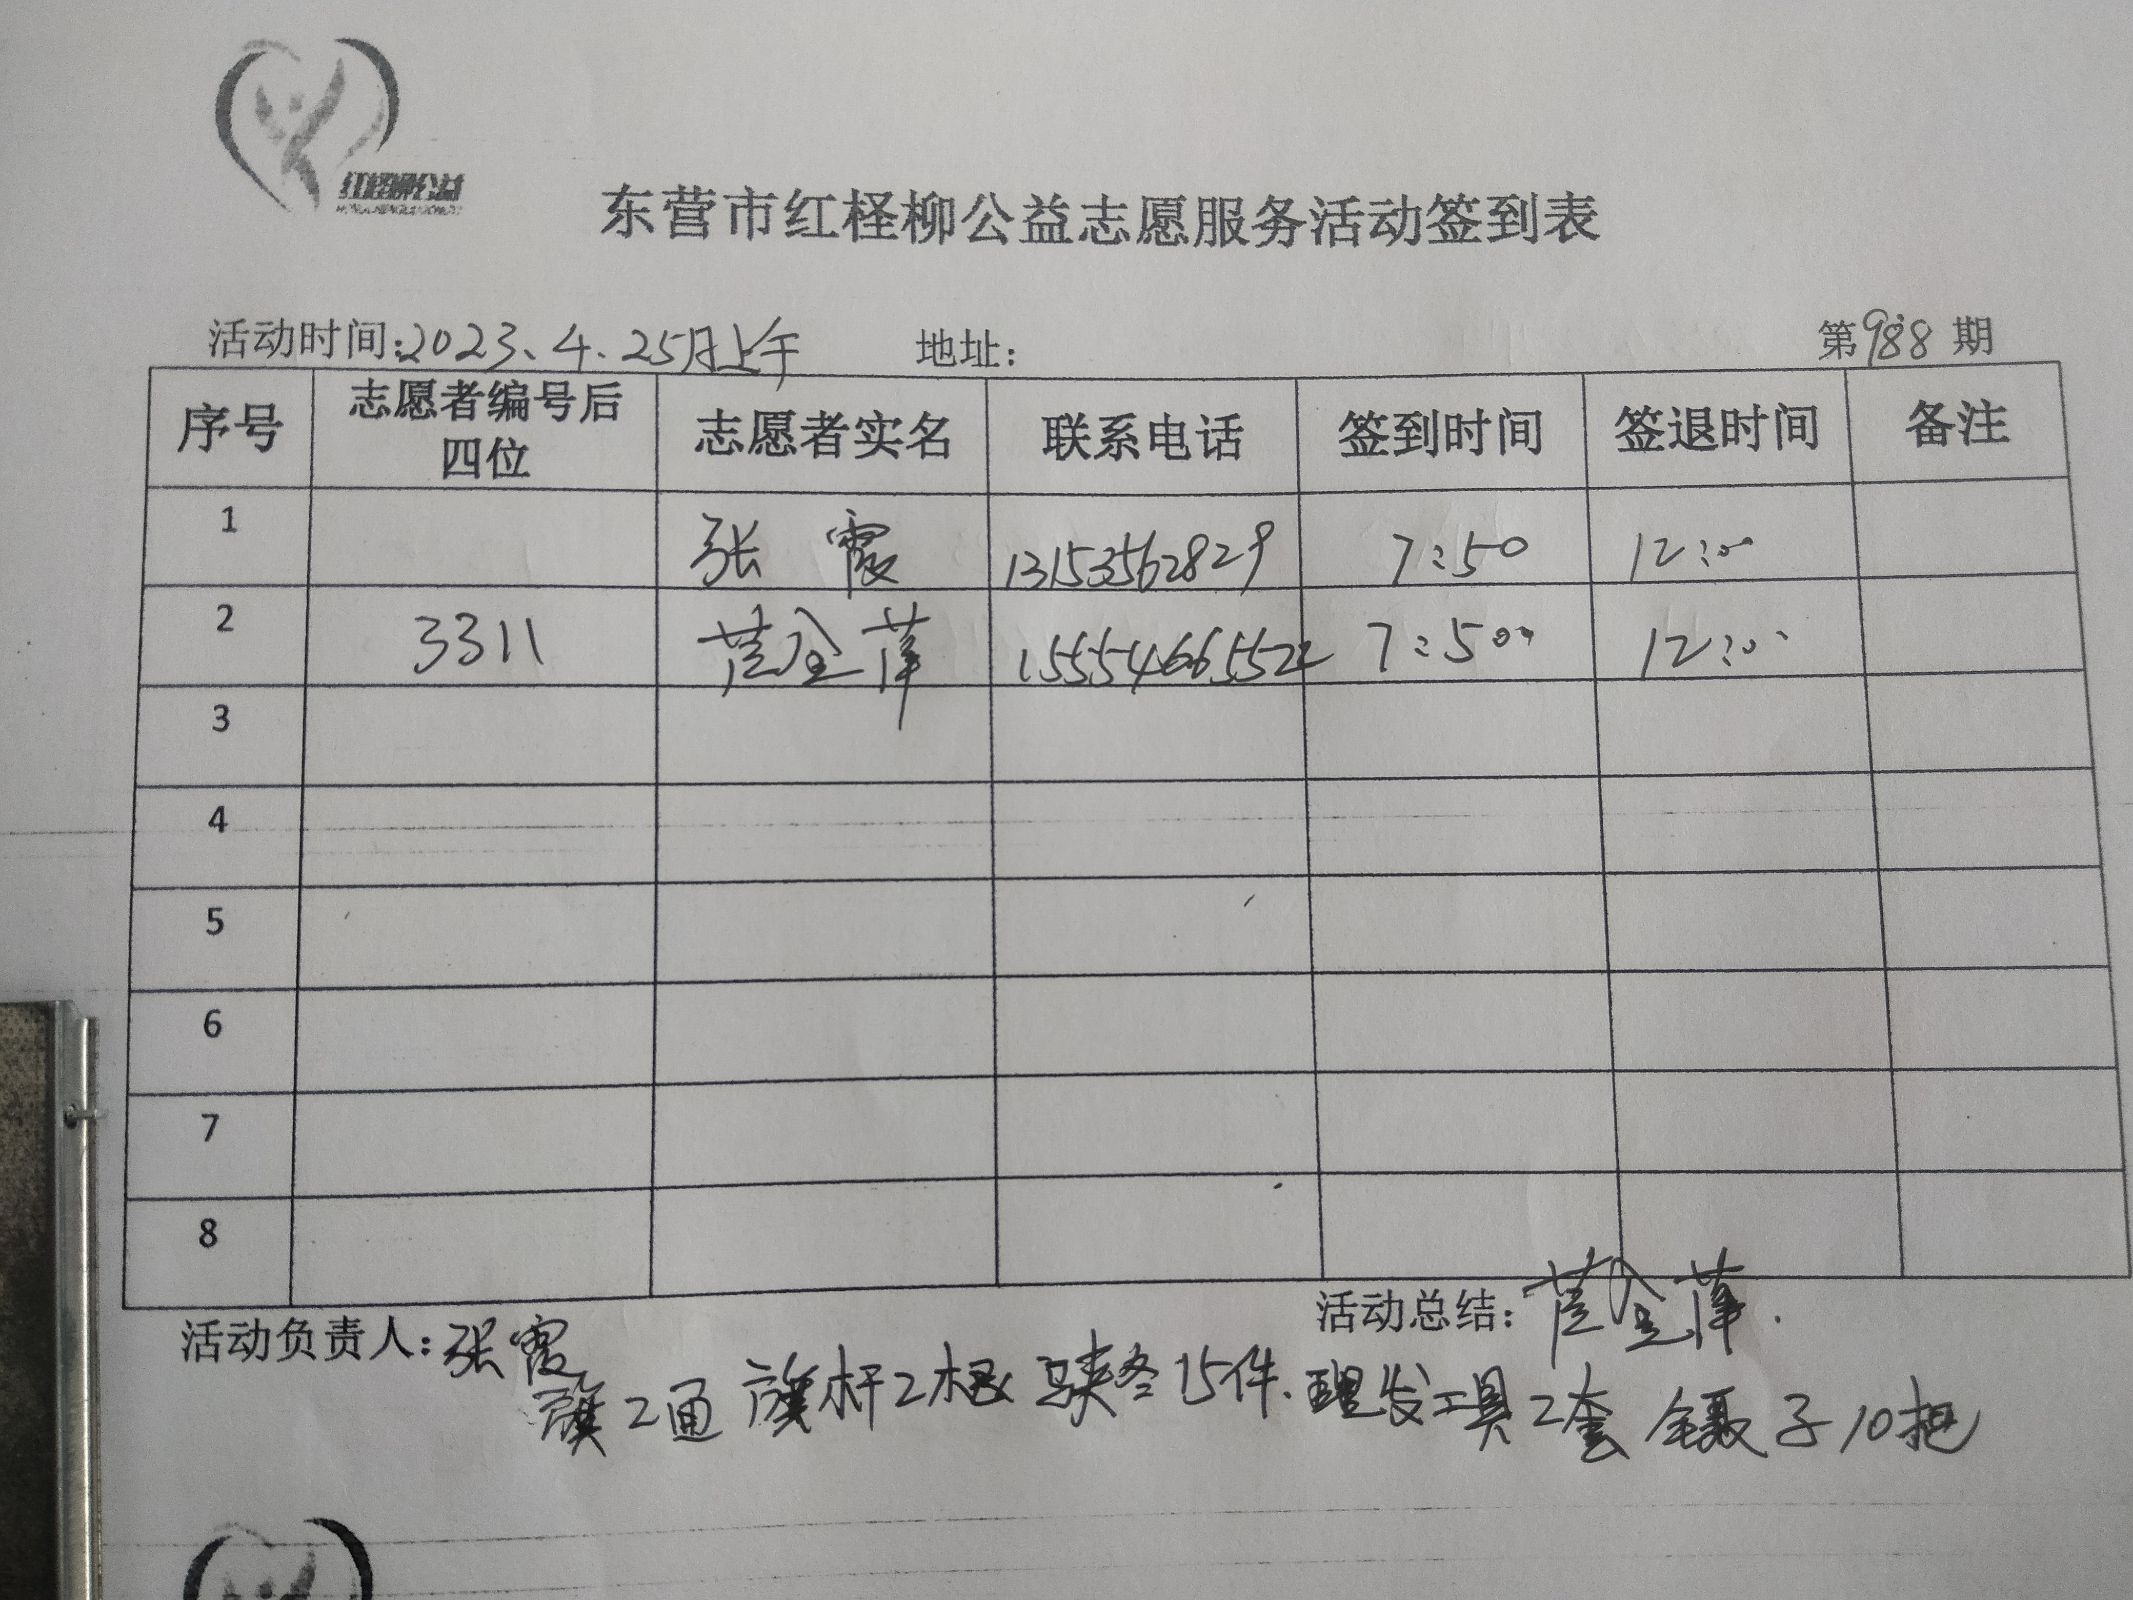 红柽柳公益
东营市红柽柳公益志愿服务活动签到表
活动时间:2023、4、25日上午 地址: 第988期
序号 志愿者编号后四位 志愿者实名 联系电话 签到时间 签退时间 备注
1 张霞 13153562829 7:50 12:00
2 3311 7:50 12:00
3
4
5
6
7
8
活动负责人:张霞 活动总结:
旗2面 旗杆2根 马夹15件、理发工具2套 镊子10把